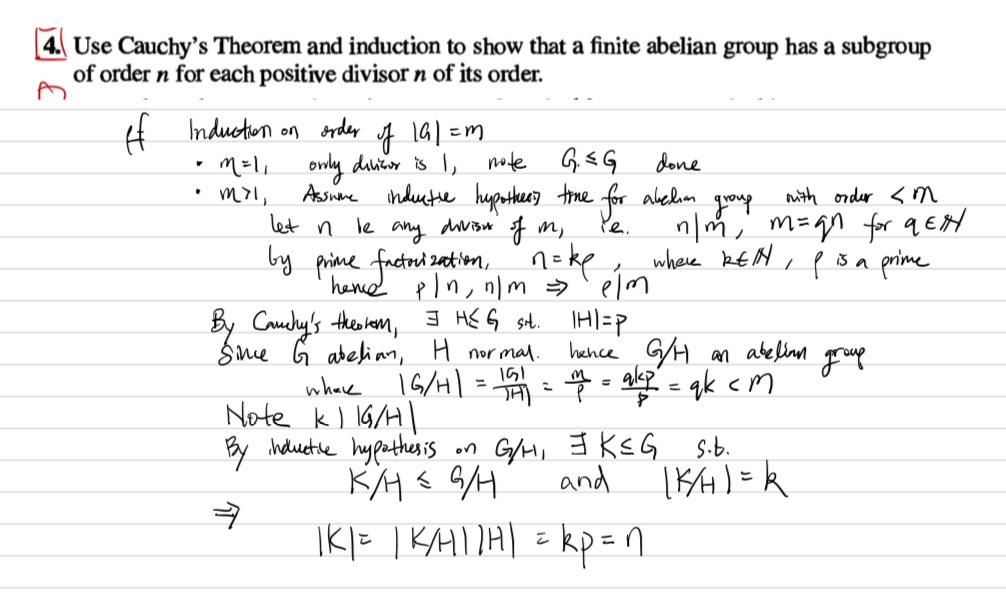 4. Use Cauchy's Theorem and induction to show that a finite abelian group has a subgroup
of order n for each positive divisor n of its order.
Pf Induction on order of |G| = m
• m=1, only divisor is 1, note G ≤ G done
• m>1, Assume inductive hypothesis true for abelian group with order < m
let n be any divisor of m, i.e. n|m, m=qn for q∈ℕ
by prime factorization, n=kp, where k∈ℕ, p is a prime
hence p|n, n|m ⇒ p|m
By Cauchy's theorem, ∃ H≤G s.t. |H|=p
Since G abelian, H normal. hence G/H an abelian group
where |G/H| = |G|/|H| = m/p = qkp/p = qk < m
Note k | |G/H|
By inductive hypothesis on G/H, ∃ K≤G s.t.
K/H ≤ G/H and |K/H| = k
⇒
|K| = |K/H| |H| = kp = n